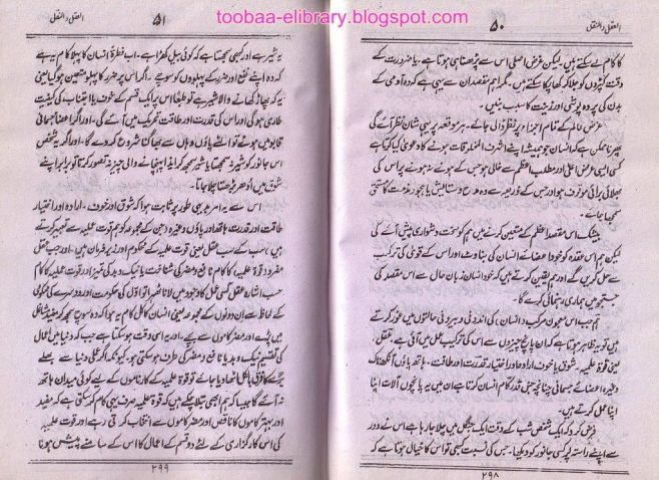 toobaa-elibrary.blogspot.com
العقل والنقل
۵۰
کا کام لے سکتے ہیں۔ لیکن غرض اصلی اس سے پڑھنا ہی ہوتا ہے۔ یا ضرورت کے
وقت کپڑوں کو جلا کر کھانا پکا سکتے ہیں۔ مگر اہم مقصد ان سے یہی ہے کہ وہ آدمی کے
بدن کی پردہ پوشی اور زینت کا سبب بنیں۔
غرض عالم کے تمام اجزاء پر نظر ڈال جائیے۔ ہر موقعہ پر یہی شان نظر آئے گی
پھر ناممکن ہے کہ انسان جو ہمیشہ اپنے اشرف المخلوقات ہونے کا دعویٰ کیا کرتا ہے
کسی ایسی غرض اعلیٰ اور مطلب اعظم سے خالی ہو جس کے ہونے نہ ہونے پر اس کی
بھلائی برائی موقوف ہو اور جس کے ذریعہ سے وہ مدح و ستائش یا ہجو و مذمت کا مستحق
سمجھا جائے۔
بیشک اس مقصد اعظم کے متعین کرنے میں ہم کو سخت دشواری پیش آئے گی
لیکن ہم اس عقدہ کو خود اعضائے انسان کی بناوٹ اور اس کے قویٰ کی ترکیب
سے حل کریں گے اور ہم یقین کرتے ہیں کہ خود انسان زبان حال سے اس مقصد کی
جستجو میں ہماری رہنمائی کرے گا۔
ہم جب اس معجونی مرکب (انسان) کی اندرونی و بیرونی حالتوں میں غور کرتے
ہیں تو یہ ظاہر ہوتا ہے کہ ان پانچ چیزوں سے اس کی ترکیب عمل میں آئی ہے۔ عقل،
یعنی قوۃ علمیہ۔ شوق یا خوف ارادہ اور اختیار قدرت اور طاقت، ہاتھ پاؤں آنکھ ناک
وغیرہ اعضائے جسمانی چنانچہ جتنی قدر کام انسان کرتا ہے ان میں یہ پانچوں آلات اپنا
اپنا عمل کرتے ہیں۔
فرض کرو کہ ایک شخص شب کے وقت ایک جنگل میں چلا جا رہا ہے اس نے دور
سے اپنے راستہ پر کسی جانور کو دیکھا۔ جس کی نسبت کبھی تو اس کا خیال ہوتا ہے کہ
۲۹۸
العقل والنقل
۵۱
یہ شیر ہے اور کبھی سمجھتا ہے کہ کوئی بیل کھڑا ہے۔ اب فطرۃً انسان کا پہلا کام یہ ہے
کہ وہ اپنے نفع اور ضرر کے پہلوؤں کو سوچے۔ اگر اس پر ضرر کا پہلو متعین ہو گیا یعنی
یہ کہ پھاڑ کھانے والا شیر ہے تو طبعاً اس پر ایک قسم کے خوف یا اجتناب کی کیفیت
طاری ہو گی اور اس کی قدرت اور طاقت تحریک میں آئے گی۔ اور اگر اعضا جسمانی
قابو میں ہوئے تو الٹے پاؤں وہاں سے بھاگنا شروع کر دے گا۔ اور اگر یہ شخص
اس جانور کو شیر نہ سمجھتا یا شیر سمجھ کر ایذا پہنچانے والی چیز نہ تصور کرتا تو برابر اپنے
شوق میں ادھر بڑھتا چلا جاتا۔
اس سے یہ امر بدیہی طور پر ثابت ہوا کہ شوق اور خوف۔ ارادہ اور اختیار
طاقت اور قدرت ہاتھ اور پاؤں وغیرہ (جن کے مجموعہ کو ہم قوت عملیہ سے تعبیر کرتے
ہیں) سب کے سب عقل یعنی قوت علمیہ کے محکوم اور زیر فرمان ہیں۔ اور جب عقل
مفرد و قوۃ علمیہ) کا کام نافع و مضر کی شناخت یا نیک و بد کی تمیز اور قوت عملیہ کا کام
حسب اشارہ عقل کسی عمل کا وجود میں لانا ٹھہرا تو اول کی حکومت اور دوسرے کی محکومی
کے لحاظ سے ان دونوں کے مجموعہ یعنی انسان کا کل کام یہ ہوا کہ وہ سوچ سمجھ کر مفید مشاغل
میں پڑے اور مضر کاموں سے بچے، اور یہ اسی وقت ہو سکتا ہے جب کہ دنیا میں اعمال
کی تقسیم نیک و بد یا نافع و مضر کی طرف ہو سکتی ہو۔ کیونکہ اگر عملی دنیا سے بھلے
برے کا فرق بالکل اٹھا دیا جائے تو قوۃ علمیہ کے کارناموں کے لیے کوئی میدان ہاتھ
نہ آئے گا جیسا کہ ہم ابھی بتلا چکے ہیں کہ قوۃ علمیہ صرف یہی کام کر سکتی ہے کہ مفید
اور بہتر کاموں کا ناقص اور مضر کاموں سے انتخاب کرتی رہے اور قوت علمیہ
کی اس کارگزاری کے لئے دو قسم کے اعمال کا اس کے سامنے پیش ہونا
۲۹۹